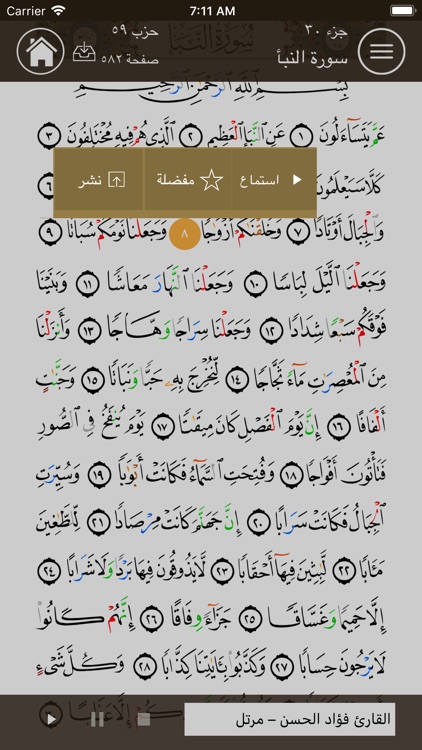 Carrier 7:11 AM
جزء ٣٠
حزب ٥٩
سورة النبأ
صفحة ٥٨٢
سُورَةُ النَّبَإِ
بِسْمِ اللَّهِ الرَّحْمَٰنِ الرَّحِيمِ
عَمَّ يَتَسَاءَلُونَ ١ عَنِ النَّبَإِ الْعَظِيمِ ٢ الَّذِي هُمْ فِيهِ مُخْتَلِفُونَ ٣
كَلَّا سَيَعْلَمُونَ
استماع
مفضلة
نشر
وَالْجِبَالَ أَوْتَادًا ٧ وَخَلَقْنَاكُمْ أَزْوَاجًا ٨ وَجَعَلْنَا نَوْمَكُمْ سُبَاتًا ٩
وَجَعَلْنَا اللَّيْلَ لِبَاسًا ١٠ وَجَعَلْنَا النَّهَارَ مَعَاشًا ١١ وَبَنَيْنَا
فَوْقَكُمْ سَبْعًا شِدَادًا ١٢ وَجَعَلْنَا سِرَاجًا وَهَّاجًا ١٣ وَأَنزَلْنَا
مِنَ الْمُعْصِرَاتِ مَاءً ثَجَّاجًا ١٤ لِّنُخْرِجَ بِهِ حَبًّا وَنَبَاتًا ١٥ وَجَنَّاتٍ
أَلْفَافًا ١٦ إِنَّ يَوْمَ الْفَصْلِ كَانَ مِيقَاتًا ١٧ يَوْمَ يُنفَخُ فِي الصُّورِ
فَتَأْتُونَ أَفْوَاجًا ١٨ وَفُتِحَتِ السَّمَاءُ فَكَانَتْ أَبْوَابًا ١٩ وَسُيِّرَتِ
الْجِبَالُ فَكَانَتْ سَرَابًا ٢٠ إِنَّ جَهَنَّمَ كَانَتْ مِرْصَادًا ٢١ لِّلطَّاغِينَ
مَآبًا ٢٢ لَّابِثِينَ فِيهَا أَحْقَابًا ٢٣ لَّا يَذُوقُونَ فِيهَا بَرْدًا وَلَا شَرَابًا ٢٤
إِلَّا حَمِيمًا وَغَسَّاقًا ٢٥ جَزَاءً وِفَاقًا ٢٦ إِنَّهُمْ كَانُوا
لَا يَرْجُونَ حِسَابًا ٢٧ وَكَذَّبُوا بِآيَاتِنَا كِذَّابًا ٢٨ وَكُلَّ شَيْءٍ
القارئ فؤاد الحسن – مرتل